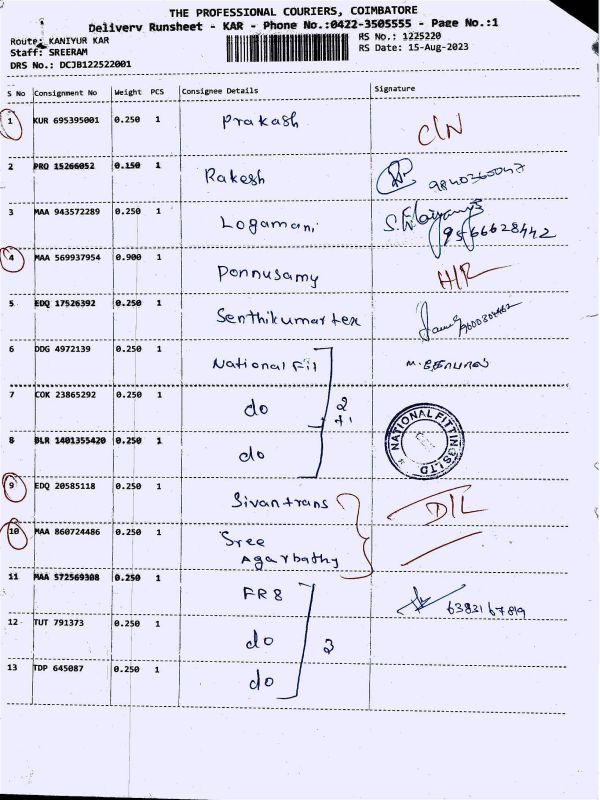 THE PROFESSIONAL COURIERS, COIMBATORE
Delivery Runsheet - KAR - Phone No.:0422-3505555 - Page No.:1
Route: KANIYUR KAR
RS No.: 1225220
Staff: SREERAM
RS Date: 15-Aug-2023
DRS No.: DCJB122522001
S No Consignment No Weight PCS Consignee Details Signature
1 KUR 695395001 0.250 1 Prakash CIN
2 PRO 15266052 0.150 1 Rakesh 9840360047
3 MAA 943572289 0.250 1 Logamani 9566628442
4 MAA 569937954 0.900 1 Ponnusamy HIR
5 EDQ 17526392 0.250 1 Senthilkumar tex
6 DDG 4972139 0.250 1 National Fit
7 COK 23865292 0.250 1 do 2
8 BLR 1401355420 0.250 1 do
NATIONAL FITTINGS LTD
9 EDQ 20585118 0.250 1 Sivan trans D/L
10 MAA 860724486 0.250 1 Sree
Agarbathy
11 MAA 572569308 0.250 1 FR8 6383167819
12 TUT 791373 0.250 1 do 3
13 TDP 645087 0.250 1 do